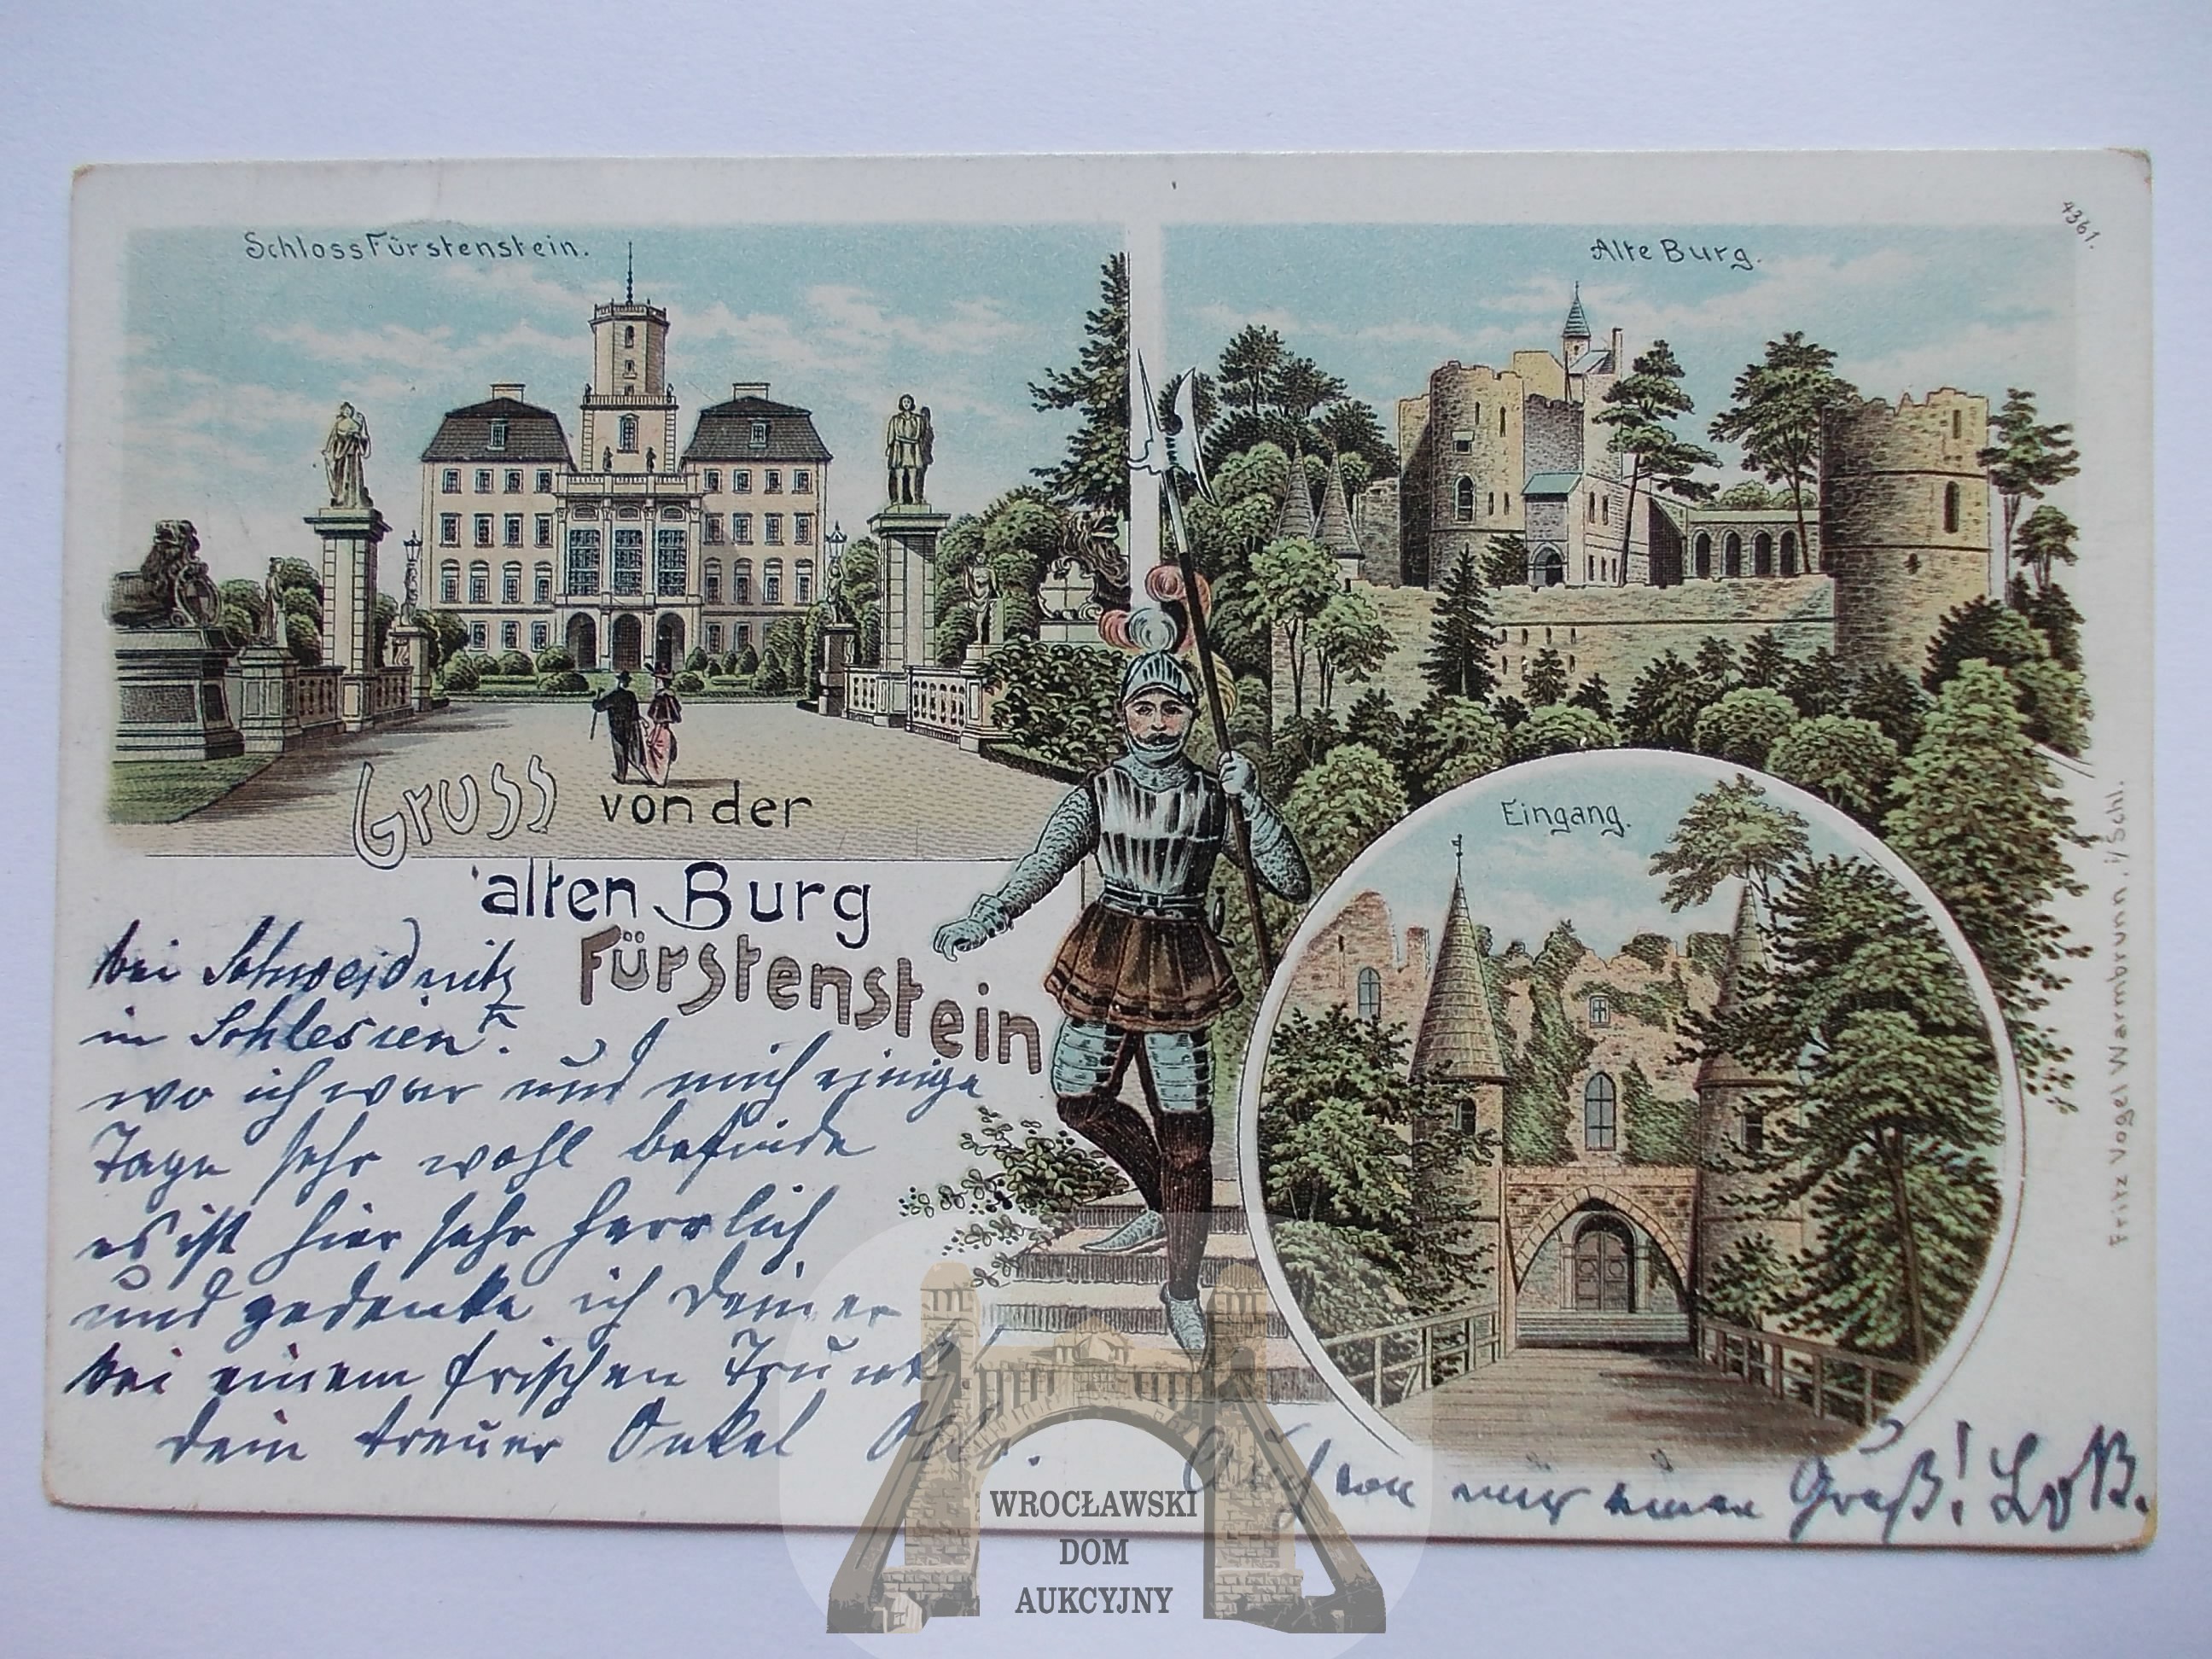 Schloss Fürstenstein.
Alte Burg.
4361.
Eingang.
Gruss von der
alten Burg
Fürstenstein
bei Schweidnitz
in Schlesien.
wo ich war und mich einige
Tage sehr wohl befinde
es ist hier sehr herrlich
und gedenke ich deiner
bei einem frischen Trunk.
dein treuer Onkel
Auch von mir einen Gruß!
Fritz Vogel Warmbrunn i/Schl.
WROCŁAWSKI
DOM
AUKCYJNY